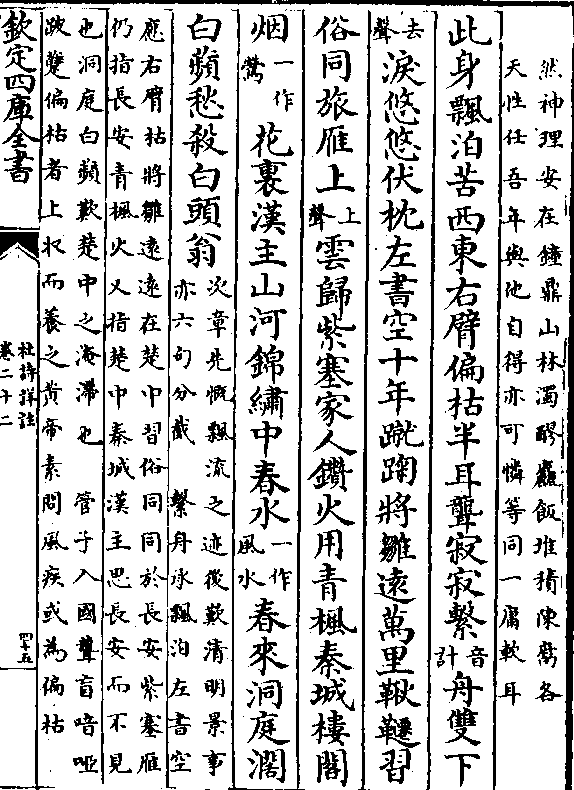 然神理安在鐘鼎山林濁醪麤飯堆積陳腐各
天性任吾年與他自得亦可憐等同一庸軟耳
此身飄泊苦西東右臂偏枯半耳聾寂寂繫音計舟雙下
去聲淚悠悠伏枕左書空十年蹴踘將雛遠萬里鞦韆習
俗同旅雁上上聲雲歸紫塞家人鑽火用青楓秦城樓閣
烟一作鶯花裏漢主山河錦繡中春水一作風水春來洞庭濶
白蘋愁殺白頭翁次章先慨飄流之迹後歎清明景事
亦六句分截 繫舟承飄泊左書空
應右臂枯將雛遠遠在楚中習俗同同於長安紫塞雁
仍指長安青楓火又指楚中秦城漢主思長安而不見
也洞庭白蘋歎楚中之淹滯也 管子入國聾盲喑啞
跛躄偏枯者上收而養之黄帝素問風疾或為偏枯
欽定四庫全書
杜詩詳註
卷二十二
四十五